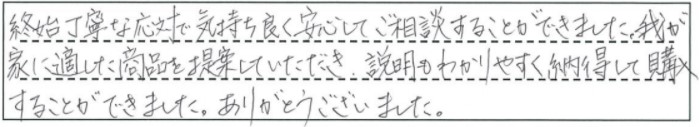 終始丁寧な応対で気持ち良く安心してご相談することができました。我が
家に適した商品を提案していただき、説明もわかりやすく納得して購入
することができました。ありがとうございました。